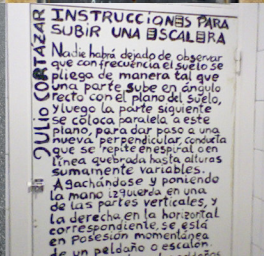 INSTRUCCIONES PARA
SUBIR UNA ESCALERA
JULIO CORTÁZAR
Nadie habrá dejado de observar
que con frecuencia el suelo se
pliega de manera tal que
una parte sube en ángulo
recto con el plano del suelo,
y luego la parte siguiente
se coloca paralela a este
plano, para dar paso a una
nueva perpendicular, conducta
que se repite en espiral o en
línea quebrada hasta alturas
sumamente variables.
Agachándose y poniendo
la mano izquierda en una
de las partes verticales, y
la derecha, en la horizontal
correspondiente, se está
en posesión momentánea
de un peldaño o escalón.